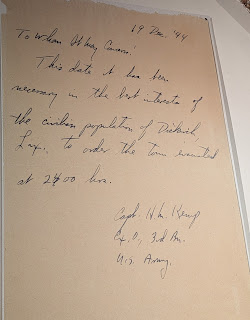 19 Dec. '44
To Whom It May Concern:
This date it has been
necessary in the best interests of
the civilian population of Diekirch,
Lux., to order the town evacuated
at 2400 hrs.
Capt. H. M. Kemp
Ex. O, 3rd Bn.
U.S. Army.